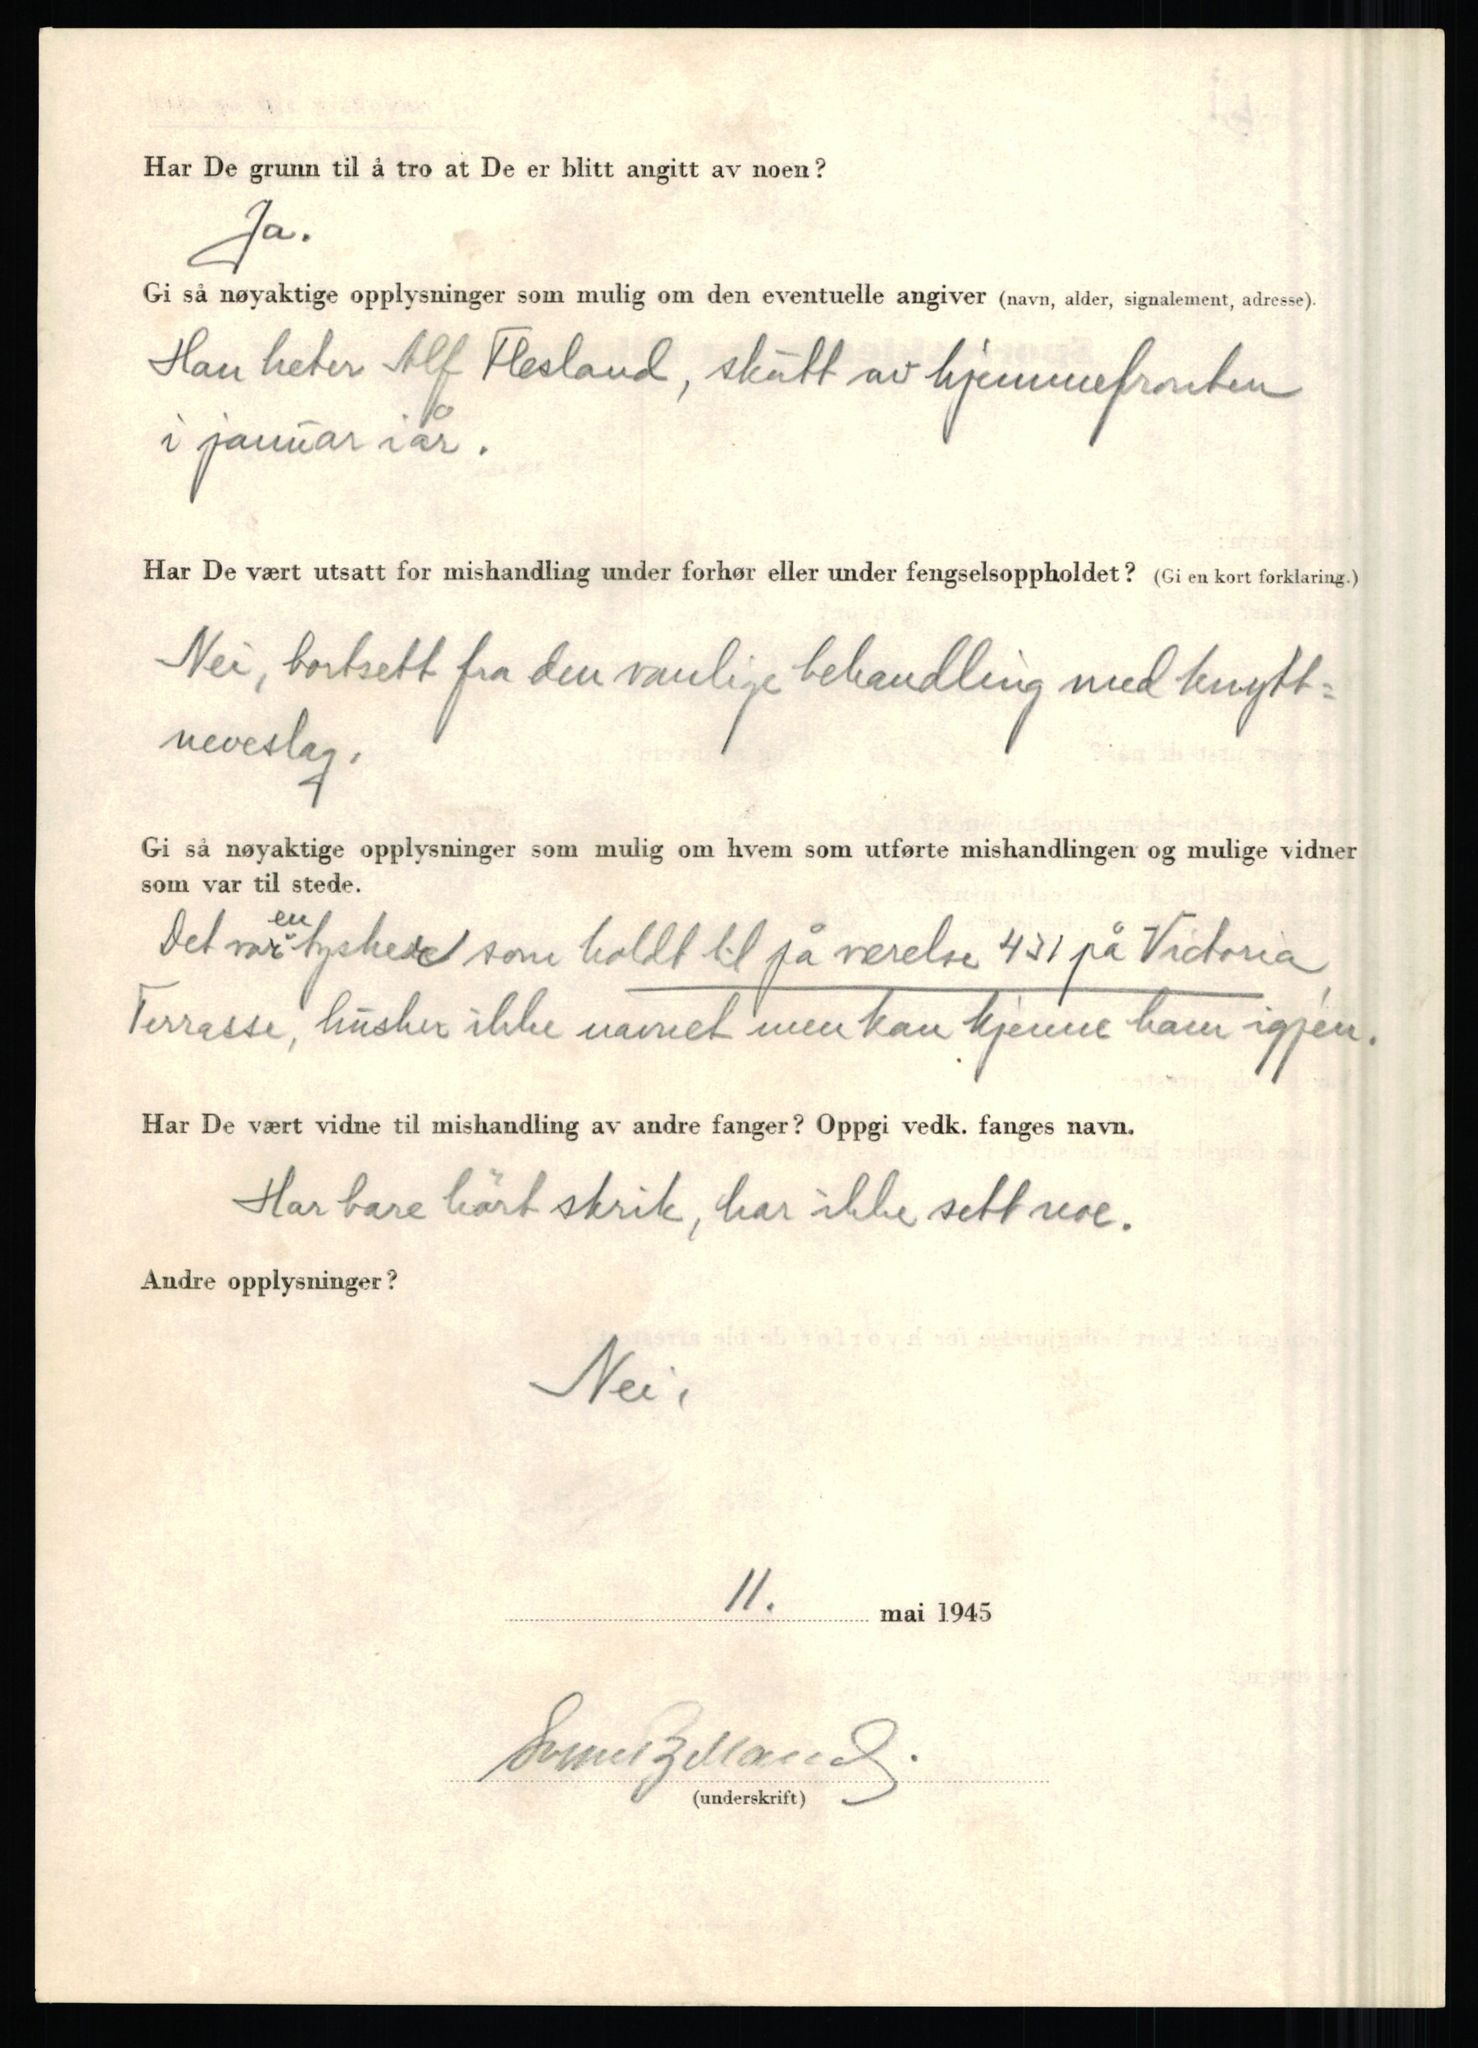 Har De grunn til å tro at De er blitt angitt av noen?
Ja.
Gi så nøyaktige opplysninger som mulig om den eventuelle angiver (navn, alder, signalement, adresse).
Han heter Alf Flesland, skutt av hjemmefronten
i januar i år.
Har De vært utsatt for mishandling under forhør eller under fengselsoppholdet? (Gi en kort forklaring.)
Nei, bortsett fra den vanlige behandling med knytt=
neveslag.
Gi så nøyaktige opplysninger som mulig om hvem som utførte mishandlingen og mulige vidner
som var til stede.
Det var en tysker som holdt til på værelse 431 på Victoria
Terrasse, husker ikke navnet men kan kjenne ham igjen.
Har De vært vidne til mishandling av andre fanger? Oppgi vedk. fanges navn.
Har bare hört skrik, har ikke sett noe.
Andre opplysninger?
Nei.
11. mai 1945
(underskrift)